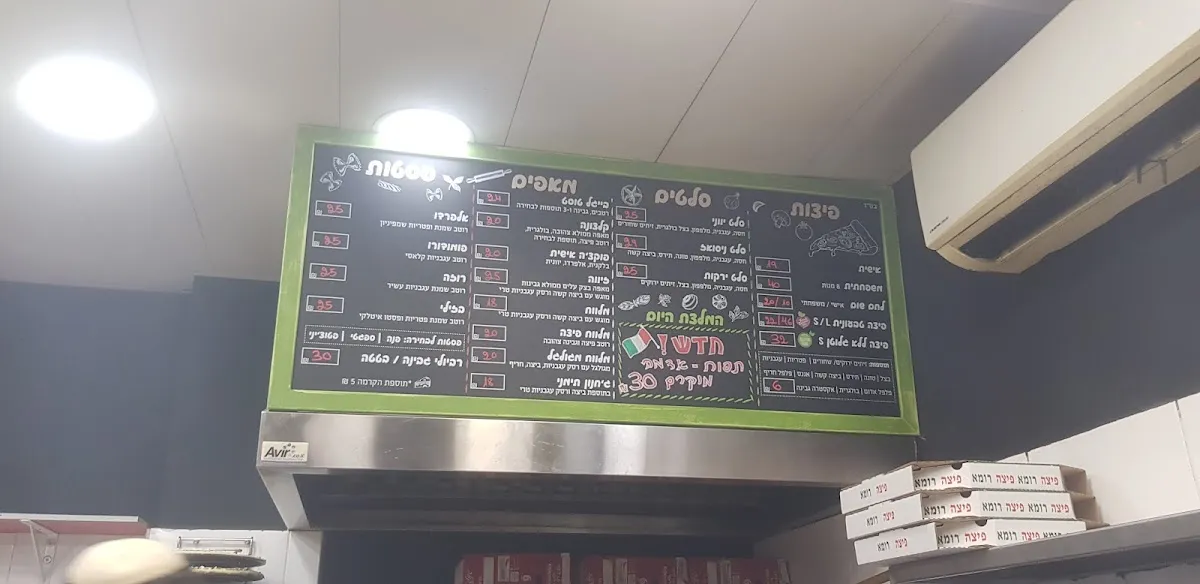 בס"ד
פיצות
אישית 19
משפחתית 8 מנות 40
לחם שום אישי / משפחתי 20/30
פיצה טבעונית S/L 32/46
פיצה ללא גלוטן S 32
תוספות: זיתים ירוקים, שחורים | פטריות | עגבניות
בצל | טונה | תירס | ביצה קשה | אננס | פלפל חריף
פלפל אדום | בולגרית | אקסטרה גבינה 6
סלטים
סלט יווני 25
חסה, עגבניה, מלפפון, בצל בולגרית, זיתים שחורים
סלט ניסואז 29
חסה, עגבניה, מלפפון, טונה, תירס, ביצה קשה
סלט ירקות 25
חסה, עגבניה, מלפפון, בצל, זיתים ירוקים
המלצת היום
חדש!
תפוח - אדמה
מוקרם 30 ₪
מאפים
בייגל טוסט 24
רטבים, גבינה ו-3 תוספות לבחירה
קלצונה 20
מאפה ממולא צהובה, בולגרית,
רוטב פיצה, תוספת לבחירה
פוקצ'ה אישית 20
בלקנית, אלפרדו, יוונית
זיווה 25
מאפה בצק עלים ממולא גבינות
מוגש עם ביצה קשה ורסק עגבניות טרי
מלווח 18
מוגש עם ביצה קשה ורסק עגבניות טרי
מלווח פיצה 20
רוטב פיצה וגבינה צהובה
מלווח מגולגל 20
מגולגל עם רסק עגבניות, ביצה, חריף
ג'יחנון תימני 18
בתוספת ביצה ורסק עגבניות טרי
פסטות
אלפרדו 25
רוטב שמנת ופטריות שמפיניון
פומודורו 25
רוטב עגבניות קלאסי
רוזה 25
רוטב שמנת עגבניות עשיר
הבזילי 25
רוטב שמנת פטריות ופסטו איטלקי
פסטות לבחירה: פנה | ספגטי | פטוצ'יני
רביולי גבינה / בטטה 30
*תוספת הקרמה 5 ₪
Avir
פיצה רומא
פיצה רומא פיצה רומא
פיצה רומא
פיצה רומא פיצה רומא
פיצה רומא
פיצה רומא פיצה רומא